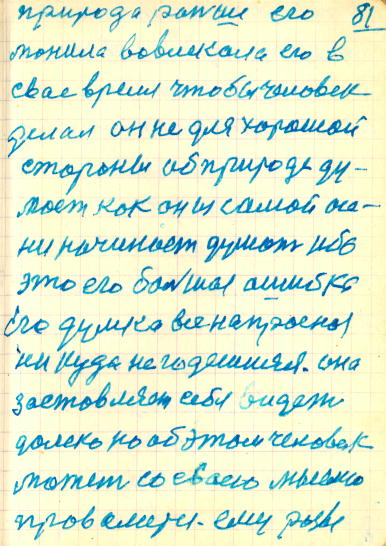 природа раньши его 81
монила вовликала его в
свае время чтобы человек
делал он не для хорошой
стороны об природе ду-
моет как он и самой осе-
ни начинает думать ибо
это его большая ошибка
Его думка все напрасноя
ни куда негодешияся. она
заставляет себя видеть
далеко но об этом человек
может со своею мыслью
провалится. ему разве